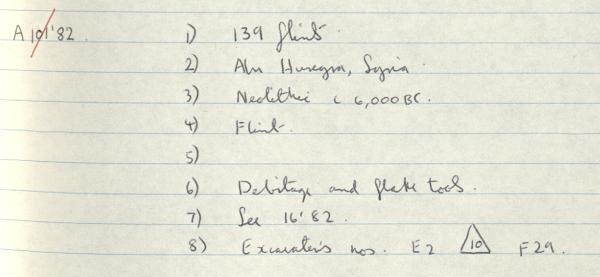 A 101'82 1) 139 flint.
2) Abu Hureyra, Syria.
3) Neolithic c 6,000 BC.
4) Flint.
5)
6) Debitage and flake tools.
7) See 16'82.
8) Excavator's nos. E2 10 F29.